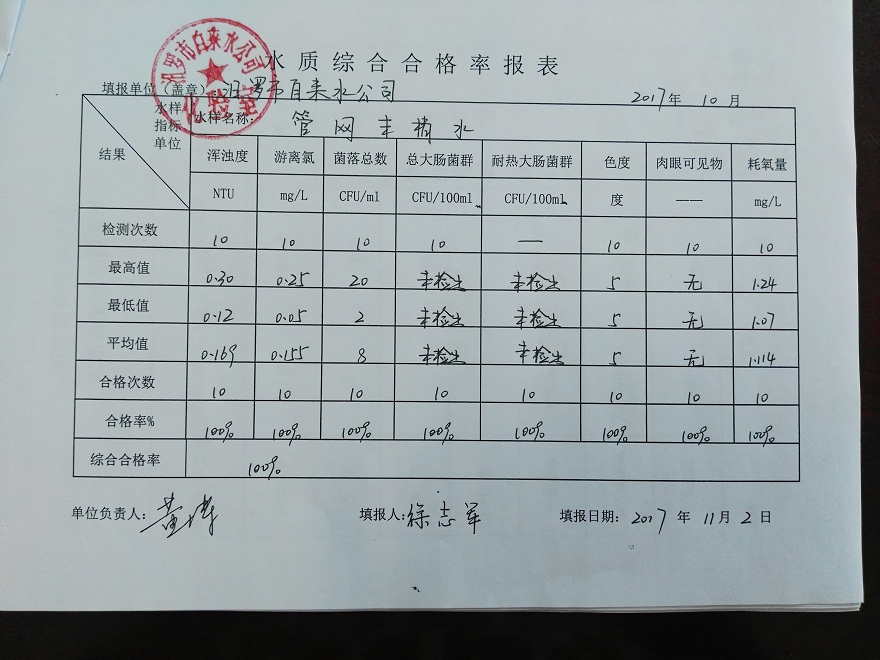 水质综合合格率报表
填报单位（盖章）汨罗市自来水公司 2017年 10 月
汨罗市自来水公司
水样 指标 单位 结果
水样名称： 管网末梢水
浑浊度 游离氯 菌落总数 总大肠菌群 耐热大肠菌群 色度 肉眼可见物 耗氧量
NTU mg/L CFU/ml CFU/100ml CFU/100mL 度 —— mg/L
检测次数 10 10 10 10 — 10 10 10
最高值 0.30 0.25 20 未检出 未检出 5 无 1.24
最低值 0.12 0.05 2 未检出 未检出 5 无 1.07
平均值 0.169 0.155 8 未检出 未检出 5 无 1.114
合格次数 10 10 10 10 10 10 10 10
合格率% 100% 100% 100% 100% 100% 100% 100% 100%
综合合格率 100%
单位负责人： 填报人：徐志军 填报日期：2017 年 11月 2 日